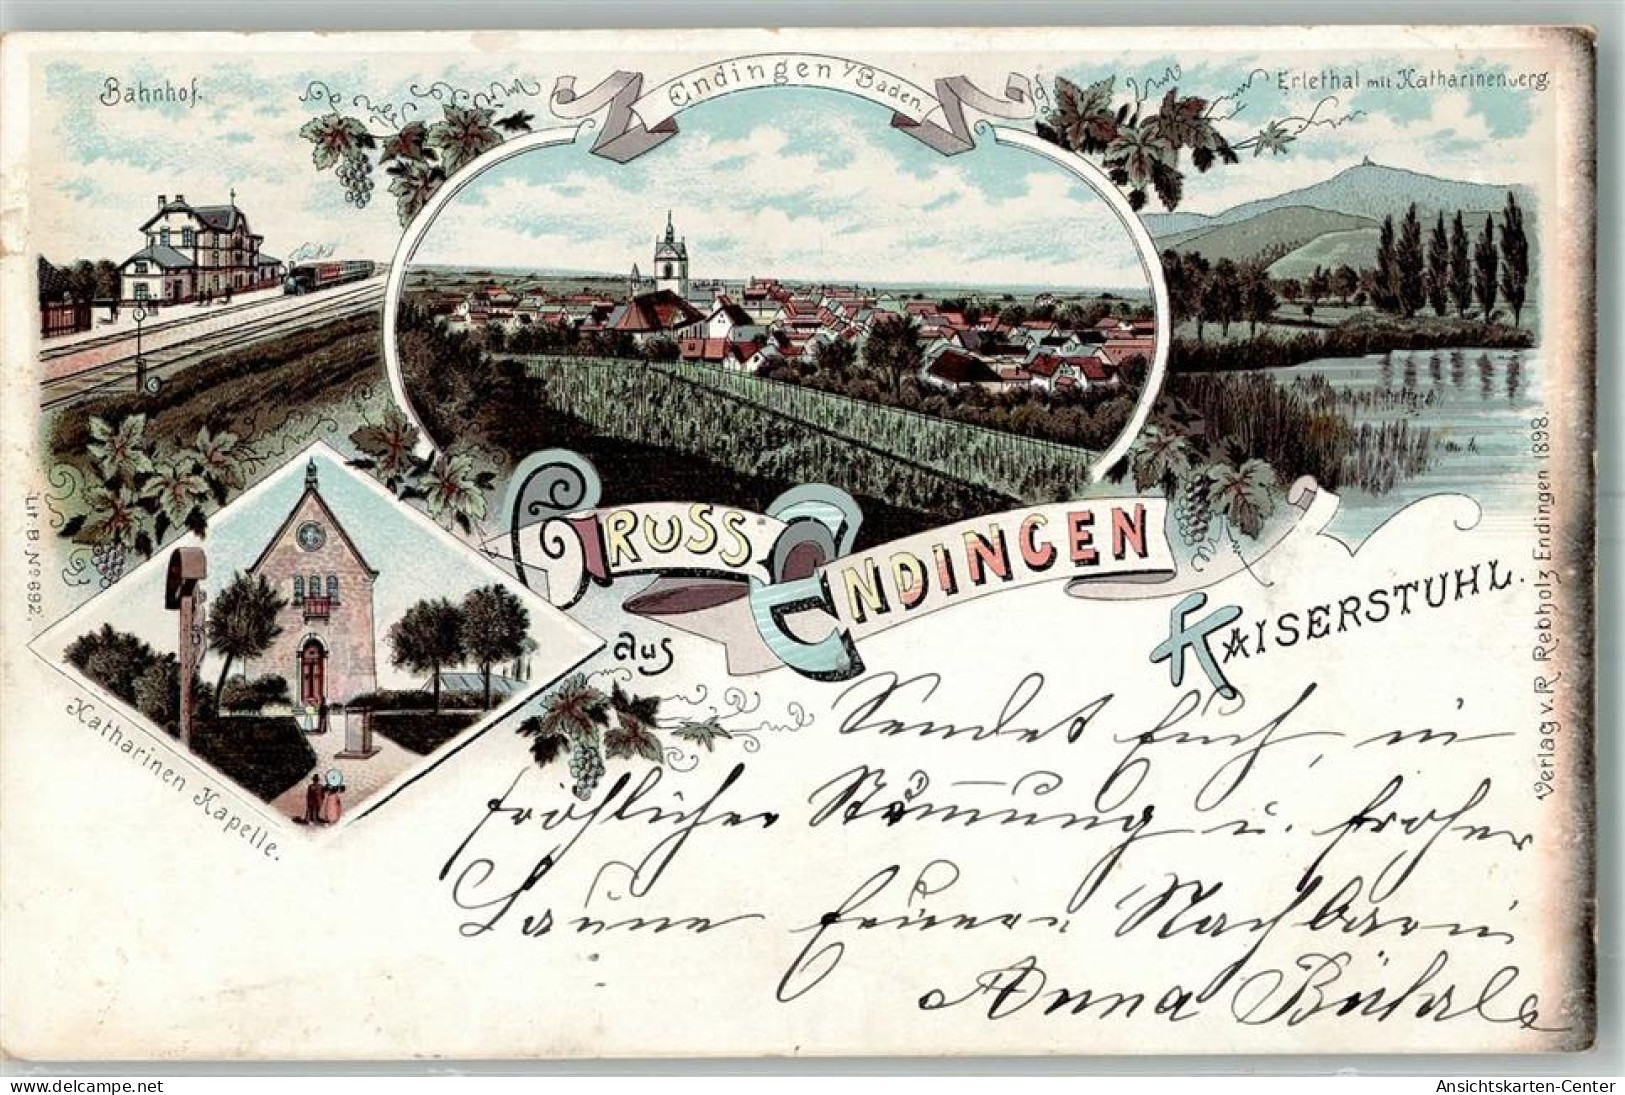 Bahnhof.
Endingen i/Baden.
Erlethal mit Katharinenverg.
GRUSS
aus
ENDINGEN
KAISERSTUHL.
Katharinen Kapelle.
Lit. B. No 692.
Verlag v. R. Rebholz Endingen 1898.
Sendet Euch, in
fröhlicher Stimmung u. froher
Laune Euere Nachbarin
Anna
oldthing.de
Ansichtskarten-Center